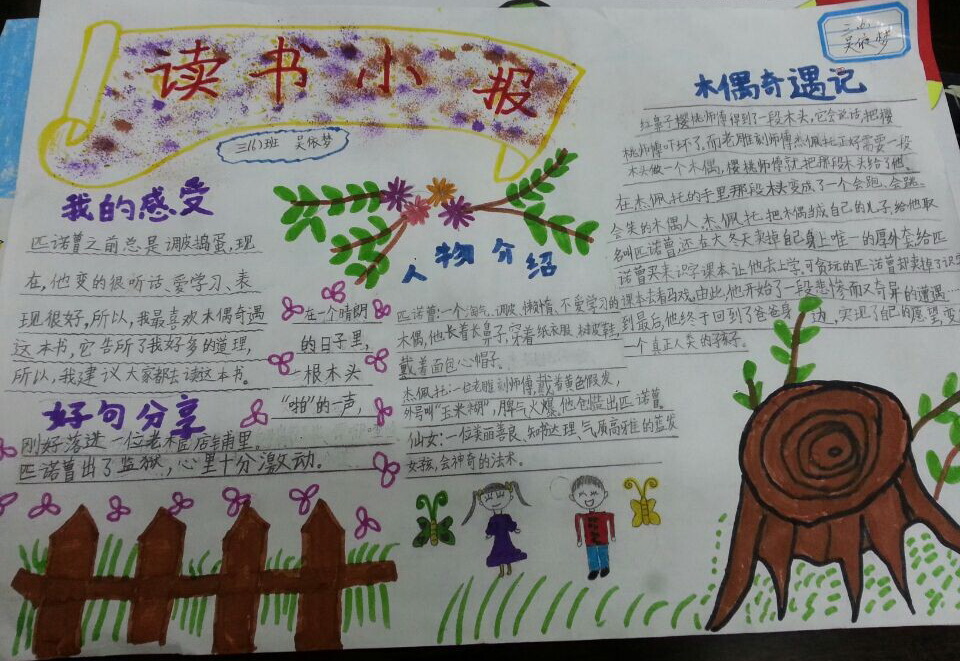 读书小报
三(1)班 吴依梦
三(1)
吴依梦
木偶奇遇记
红鼻子樱桃师傅得到了一段木头,它会说话,把樱
桃师傅吓坏了,而老雕刻师傅杰佩托正好需要一段
木头做一个木偶,樱桃师傅就把那段木头给了他。
在杰佩托的手里那段木头变成了一个会跑、会跳、
会笑的木偶人,杰佩托把木偶当成自己的儿子,给他取
名叫匹诺曹,还在大冬天卖掉自己身上唯一的厚外套给匹
诺曹买来识字课本让他去上学,可贪玩的匹诺曹却卖掉了识字
课本去看马戏。由此,他开始了一段悲惨而又奇异的遭遇…
到最后,他终于回到了爸爸身边,实现了自己的愿望,变
一个真正人类的孩子。
我的感受
匹诺曹之前总是调皮捣蛋,现
在,他变的很听话、爱学习、表
现很好,所以,我最喜欢木偶奇遇
这本书,它告所了我好多的道理,
所以,我建议大家都去读这本书。
好句分享
在一个晴朗
的日子里,
一根木头
“啪”的一声,
刚好落进一位老木匠店铺里。
匹诺曹出了监狱,心里十分激动。
人物介绍
匹诺曹:一个淘气、调皮、懒惰、不爱学习的
木偶,他长着长鼻子,穿着纸衣服、树皮鞋,
戴着面包心帽子。
杰佩托:一位老雕刻师傅,戴着黄色假发,
外号叫“玉米糊”,脾气火爆。他创造出匹诺曹。
仙女:一位美丽善良、知书达理、气质高雅的蓝发
女孩,会神奇的法术。